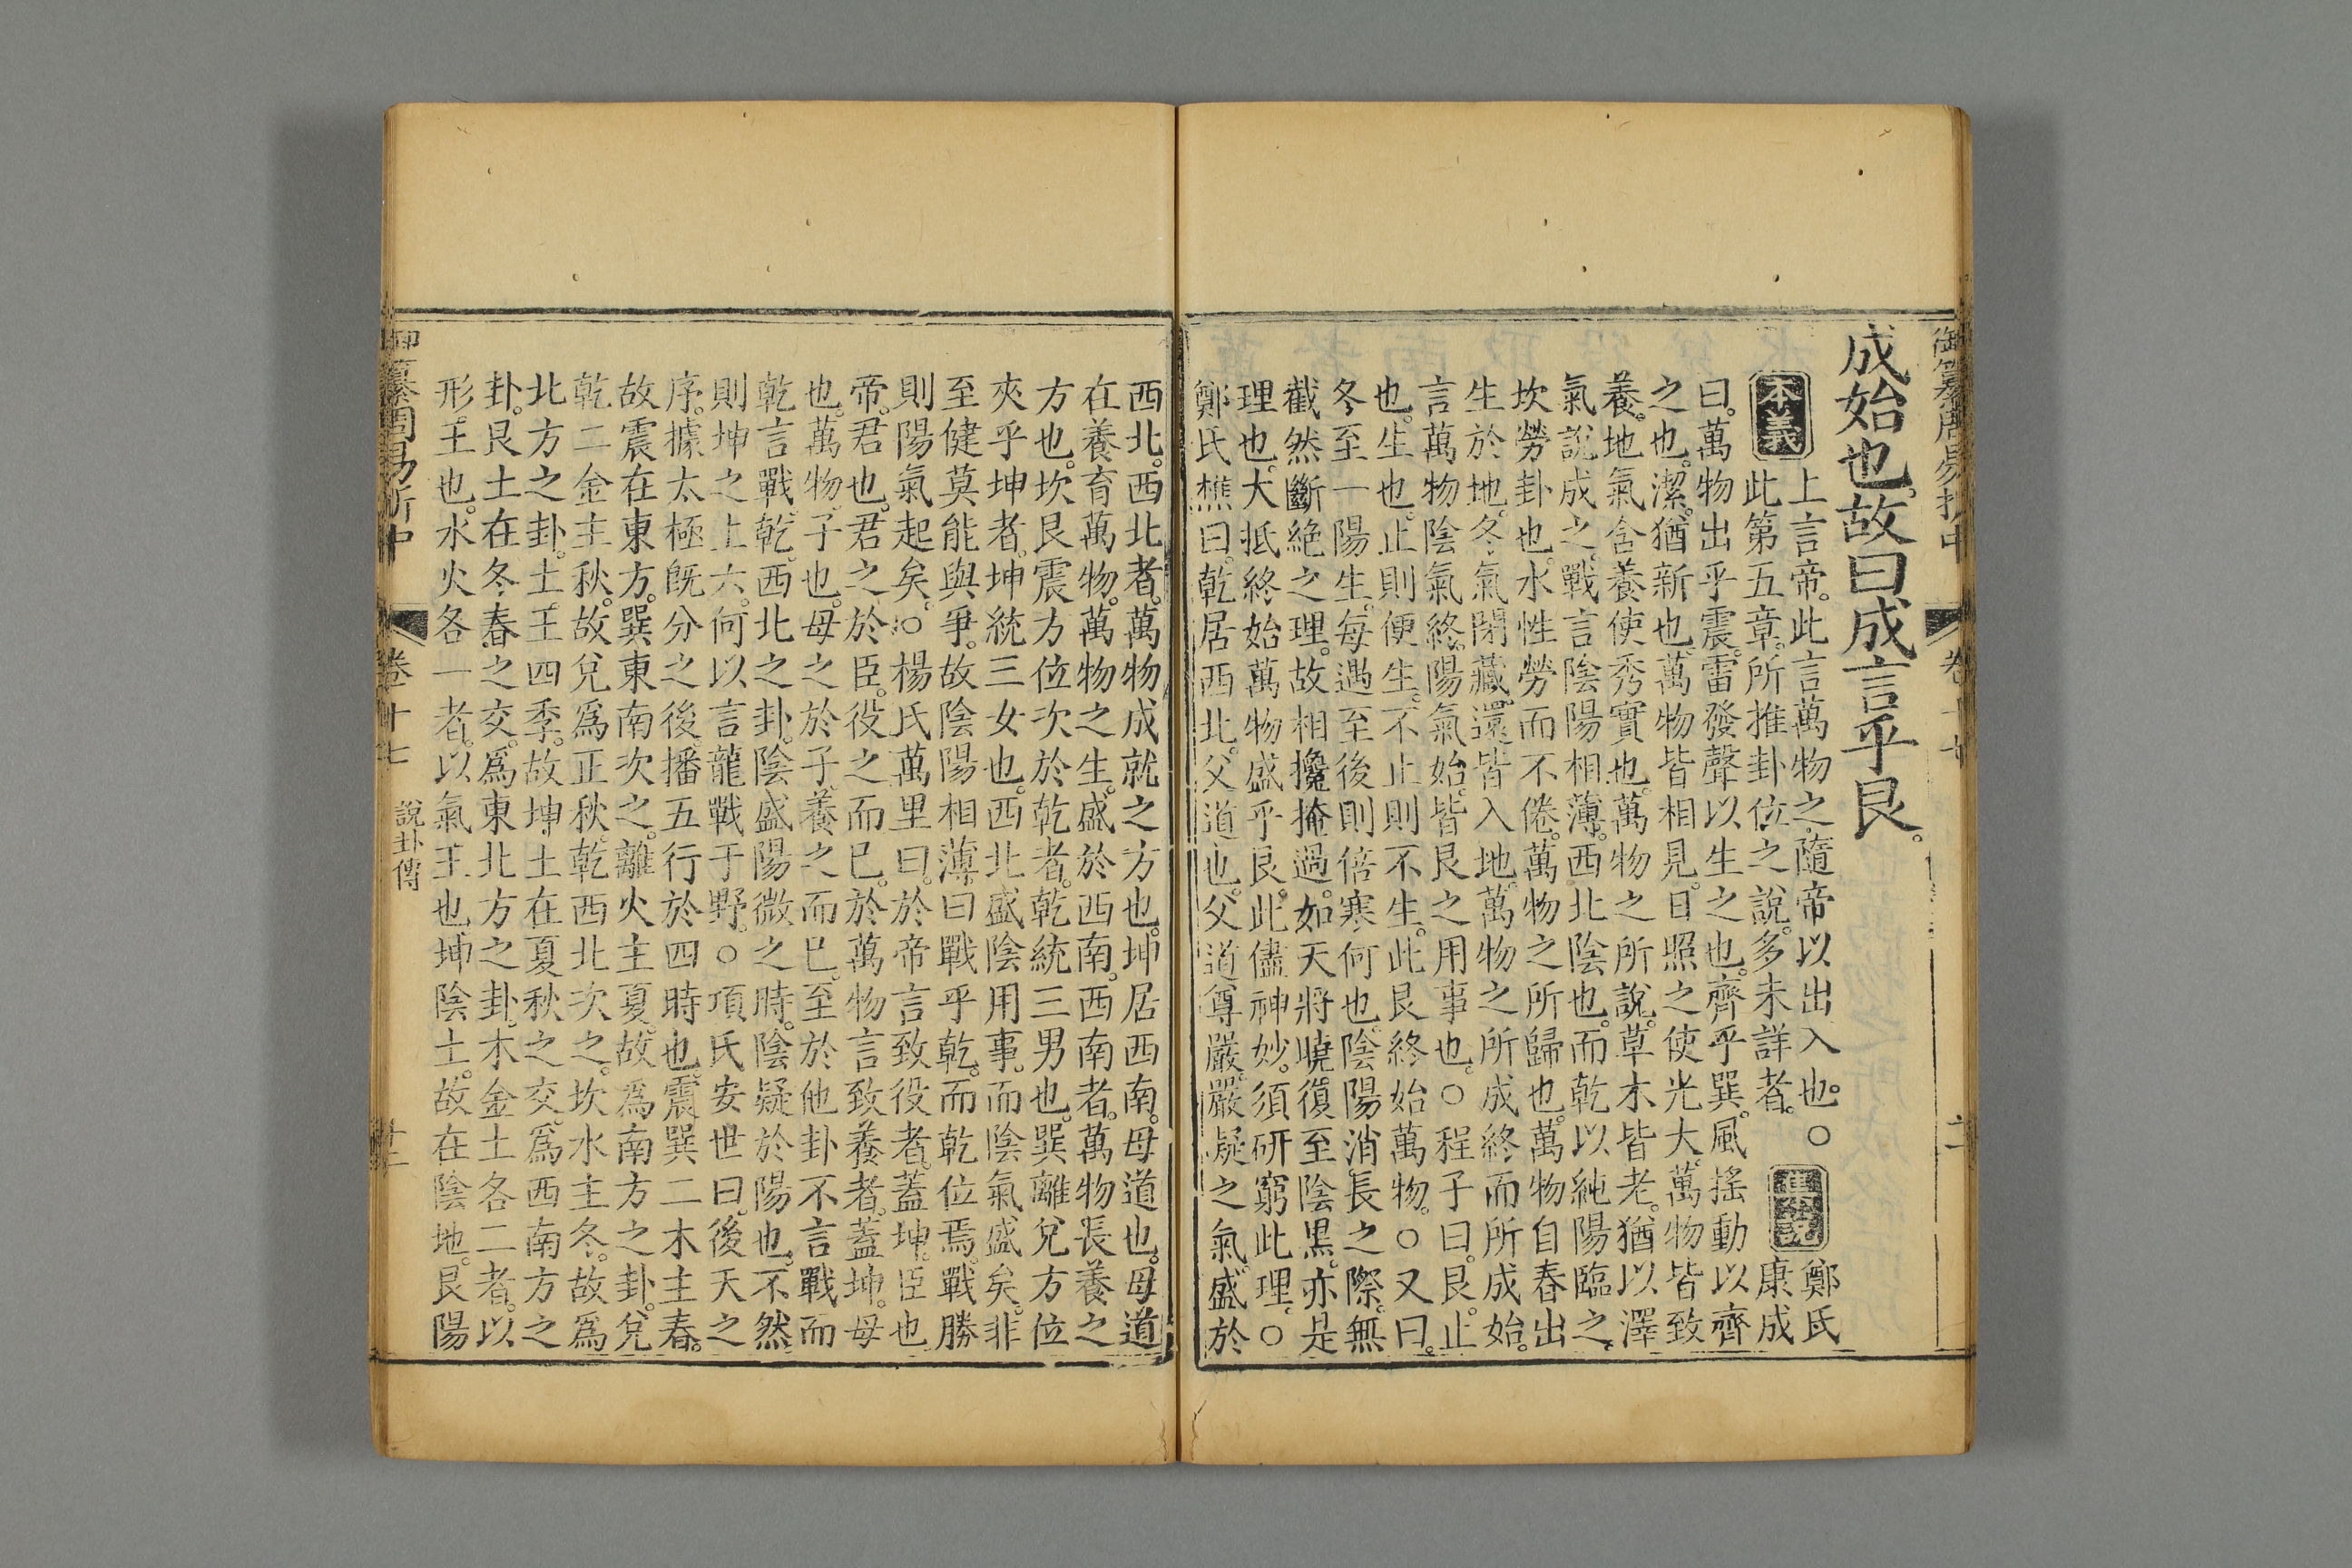 御纂周易折中
卷十七
成始也。故曰成言乎艮。
本義
上言帝。此言萬物之隨帝以出入也。○
此第五章。所推卦位之說。多未詳者。
集說
鄭氏
康成
曰。萬物出乎震。雷發聲以生之也。齊乎巽。風搖動以齊
之也。潔。猶新也。萬物皆相見。日照之使光大。萬物皆致
養。地氣含養使秀實也。萬物之所說。草木皆老。猶以澤
氣說成之。戰言陰陽相薄。西北陰也。而乾以純陽臨之。
坎勞卦也。水性勞而不倦。萬物之所歸也。萬物自春出
生於地。冬氣閉藏。還皆入地。萬物之所成終而所成始。
言萬物陰氣終。陽氣始。皆艮之用事也。○程子曰。艮。止
也。生也。止則便生。不止則不生。此艮終始萬物。○又曰。
冬至一陽生。每遇至後則倍寒何也。陰陽消長之際。無
截然斷絶之理。故相攙掩過。如天將曉復至陰黑。亦是
理也。大抵終始萬物盛乎艮。此儘神妙。須研窮此理。○
鄭氏樵曰。乾居西北。父道也。父道尊嚴。嚴凝之氣。盛於
西北。西北者。萬物成就之方也。坤居西南。母道也。母道
在養育萬物。萬物之生。盛於西南。西南者。萬物長養之
方也。坎艮震方位次於乾者。乾統三男也。巽離兌方位
夾乎坤者。坤統三女也。西北盛陰用事。而陰氣盛矣。非
至健莫能與爭。故陰陽相薄。曰戰乎乾。而乾位焉。戰勝
則陽氣起矣。○楊氏萬里曰。於帝言致役者。蓋坤。臣也
帝。君也。君之於臣。役之而已。於萬物言致養者。蓋坤。母
也。萬物。子也。母之於子。養之而已。至於他卦不言戰而
乾言戰。乾。西北之卦。陰盛陽微之時。陰疑於陽也。不然
則坤之上六。何以言龍戰于野。○項氏安世曰。後天之
序。據太極既分之後播五行於四時也。震巽二木主春。
故震在東方。巽東南次之。離火主夏。故爲南方之卦。兌
乾二金主秋。故兌爲正秋。乾西北次之。坎水主冬。故爲
北方之卦。土王四季。故坤土在夏秋之交。爲西南方之
卦。艮土在冬春之交。爲東北方之卦。木金土各二者。以
形。王也。水火各一者。以氣王也。坤陰土。故在陰地。艮陽
卷十七
說卦傳